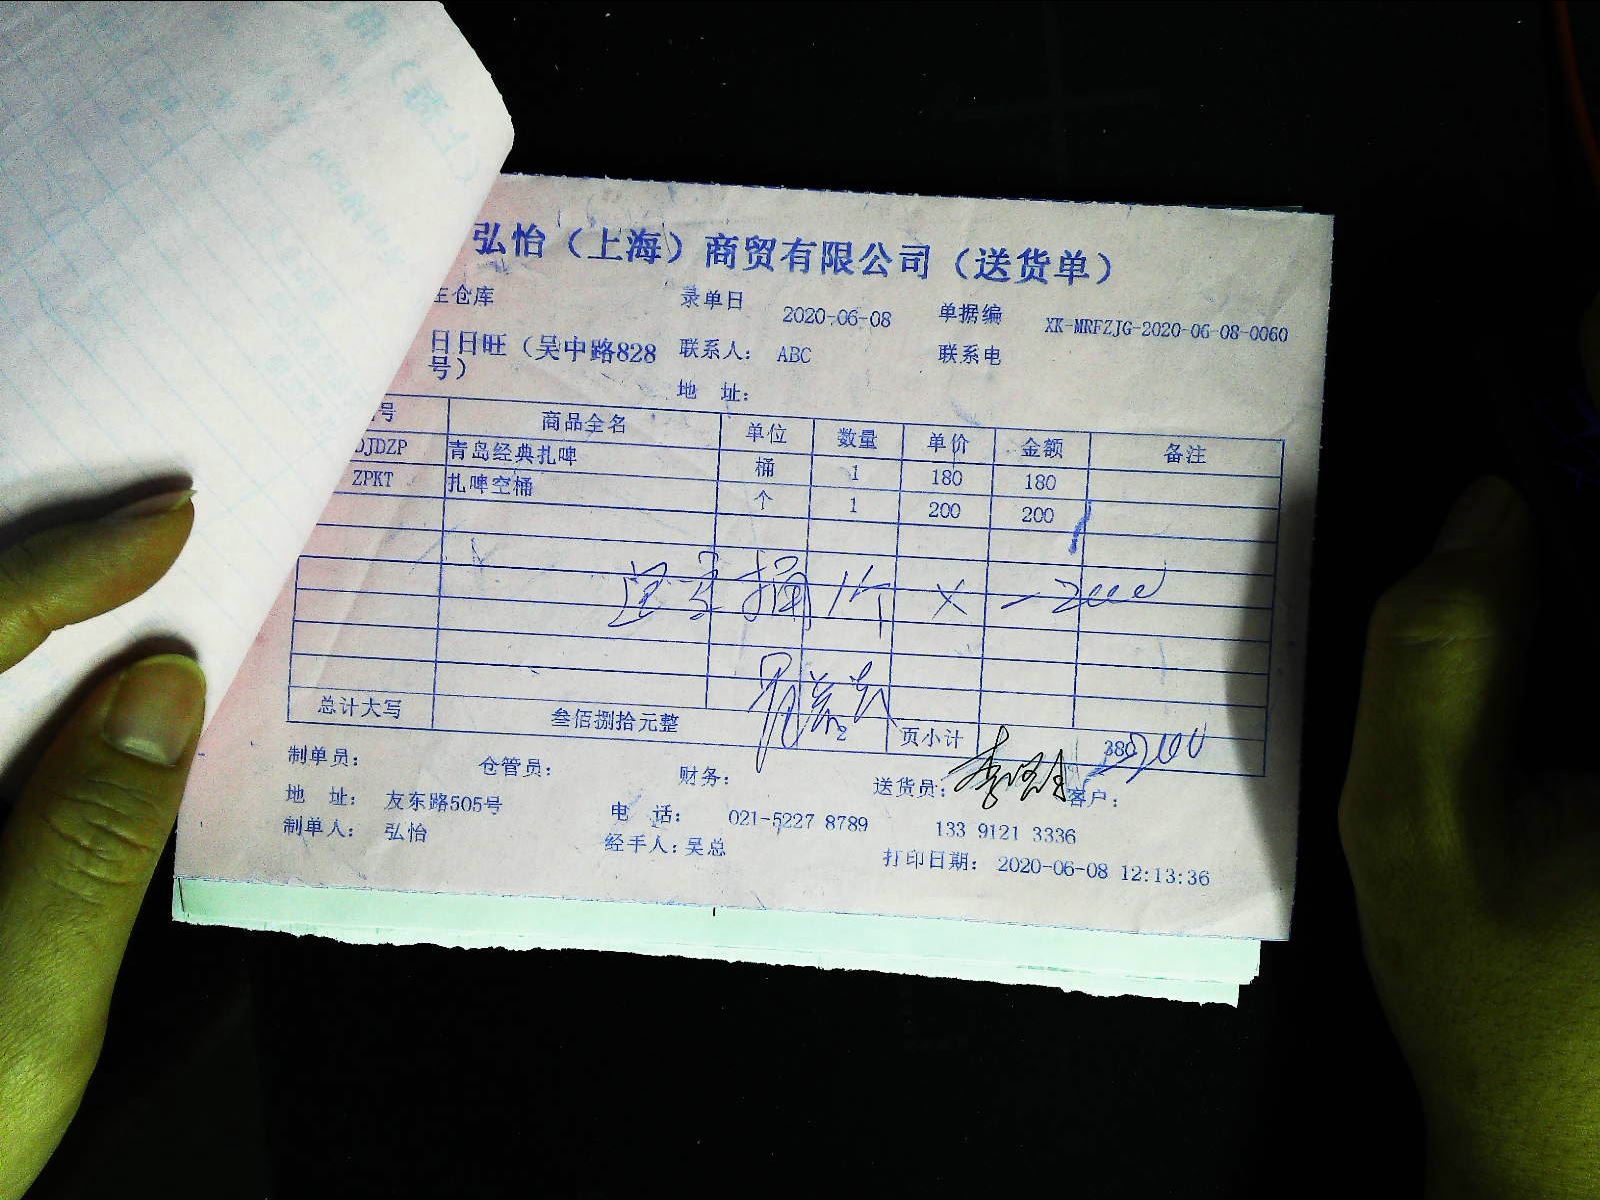 弘怡（上海）商贸有限公司（送货单）
主仓库 录单日 2020-06-08 单据编 XK-MRFZJG-2020-06-08-0060
日日旺（吴中路828号） 联系人： ABC 联系电
地 址：
号 商品全名 单位 数量 单价 金额 备注
DJDZP 青岛经典扎啤 桶 1 180 180
ZPKT 扎啤空桶 个 1 200 200
桶 1个 × -200
总计大写 叁佰捌拾元整 2 页小计 380
制单员： 仓管员： 财务： 送货员： 客户：
地 址： 友东路505号 电 话： 021-5227 8789 133 9121 3336
制单人： 弘怡 经手人：吴总 打印日期： 2020-06-08 12:13:36